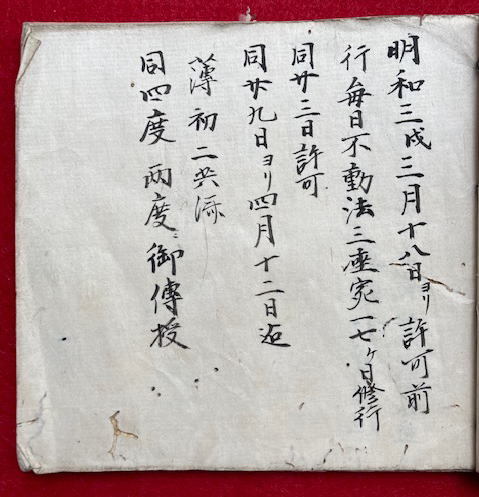 明和三戌三月十八日ヨリ許可前
行毎日不動法三座宛一七ケ日修行
同廿三日許可
同廿九日ヨリ四月十二日迠
薄初二共流
同四度両度御傳授